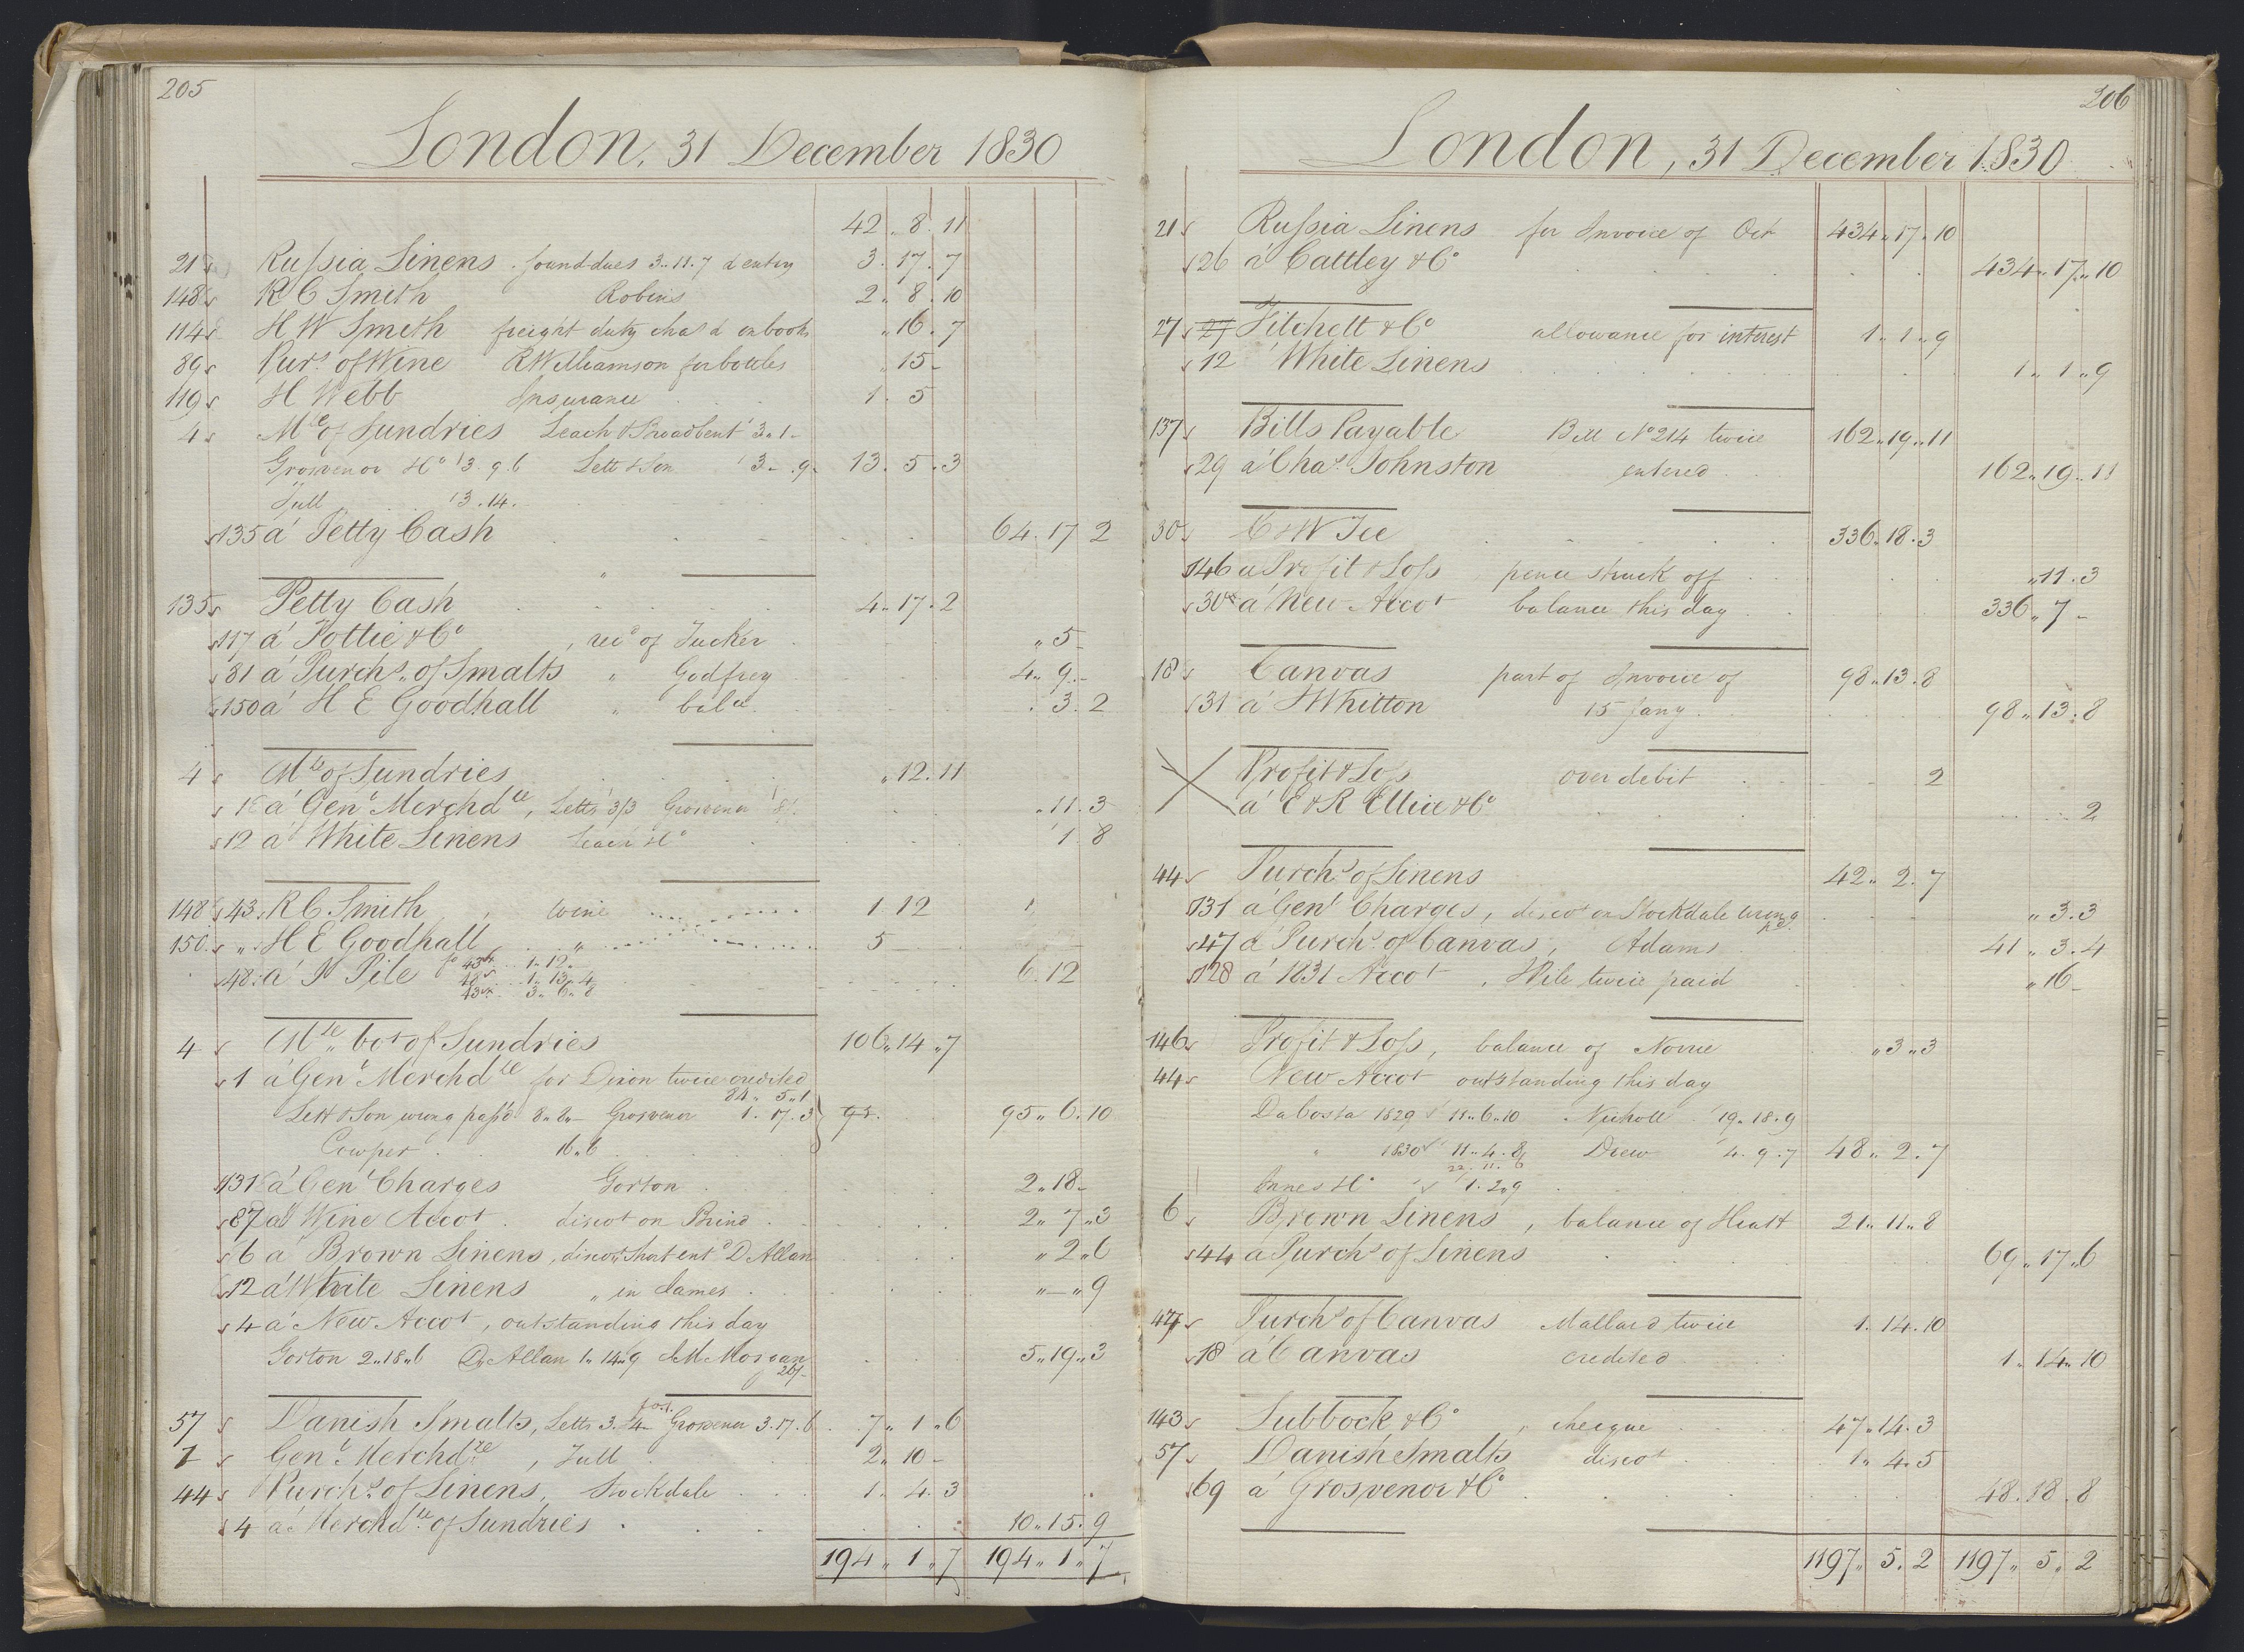 205
London, 31 December 1830
42 „ 8 . 11
21 Russia Linens . found dues 3.. 11. 7 & entry 3 . 17 . 7
148 R C Smith Robins 2 „ 8 . 10
114 H W Smith freight duty cha.s & on books „ 16 . 7
89 Purs. of Wine R Williamson for bottles „ 15 -
119 H Webb Insurance 1 . 5
4 Mce of Sundries Leach & Broadbent 3 „ 1 -
Grosvenor & Co 3. 9. 6 Lett & Son 3 - . 9 - 13 . 5 . 3
Tull 3 . 14 .
135 á Petty Cash 64 . 17 2
135 Petty Cash 4 „ 17 . 2
117 á Pottie & Co , recd of Tucker „ 5 -
81 á Purchs. of Smalts „ Godfrey 4 „ 9 . -
150 á H E Goodhall „ balce . 3 . 2
4 Mce of Sundries „ 12 . 11
1 á Genl Merchdce, Letts 3/3 Grosvenor 8/. „ 11 . 3
12 á White Linens Leach & Co 1 8
148 43 R C Smith , wine 1 12
150 „ H E Goodhall „ 5
48 á P Pile fo 43 .. 1 „ 12 „ 6 . 12
48 . . 1 „ 13 „ 4
43 . . 3 „ 6 „ 8
4 Mce „ bot of Sundries 106 „ 14 „ 7
1 á Genl Merchdce for Dixon twice credited
84 „ 5 „ 1
Lett & Son wrong pass'd 8 „ 8 „ - Grosvenor 1 . 17 . 3 95 . 95 „ 6 . 10
Cowper . . 16 „ 6
131 á Genl Charges Gorton 2 „ 18 -
87 á Wine Accot . discot on Brind 2 „ 7 „ 3
6 á Brown Linens, discot short entd D Allan „ 2 „ 6
12 á White Linens „ in James „ - „ 9
4 á New Accot, outstanding this day
Gorton 2 „ 18 „ 6 D. Allan 1 „ 14 „ 9 & M Morgan 26/- 5 „ 19 „ 3
57 Danish Smalts, Letts 3 . 4 - Grosvenor 3 . 17 . 6 7 „ 1 „ 6
1 Genl Merchdze , Tull 2 „ 10 -
44 Purchs. of Linens, Stockdale 1 „ 4 . 3
4 á Merchdce of Sundries 10 „ 15 . 9
194 „ 1 „ 7 194 „ 1 „ 7
206
London, 31 December 1830
21 Russia Linens for Invoice of Oct 434 „ 17 „ 10
26 á Cattley & Co 434 „ 17 „ 10
27 27 Fitchett & Co allowance for interest 1 „ 1 „ 9
12 White Linens 1 „ 1 „ 9
137 Bills Payable Bill No 214 twice 162 „ 19 „ 11
29 á Chas. Johnston entered 162 „ 19 „ 11
30 C & W Tee 336 „ 18 . 3
146 á Profit & Loss pence struck off „ 11 . 3
30 á New Accot balance this day 336 „ 7 -
18 Canvas part of Invoice of 98 „ 13 . 8
31 á J Whitton 15 Jany 98 „ 13 . 8
Profit & Loss over debit 2
á E & R Ellice & Co 2
44 Purchs of Linens 42 „ 2 . 7
131 á Genl Charges, discot on Stockdale wrong pd. „ 3 . 3
47 á Purchs. of Canvas, Adams 41 „ 3 . 4
128 á 1831 Accot , Wile twice paid „ 16 -
146 Profit & Loss, balance of Nowe „ 3 „ 3
44 New Accot outstanding this day
DaCosta 1829 18 „ 6 „ 10 . Nicholl 19 „ 18 . 9
„ 1830 11 „ 4 . 8 Drew 4 . 9 . 7 48 „ 2 . 7
22 . 11 . 6
Innes & Co 1 . 2 „ 9
6 Brown Linens, balance of Hiatt 21 „ 11 „ 8
44 á Purchs of Linens 69 „ 17 „ 6
47 Purchs of Canvas Mallard twice 1 . 14 . 10
18 á Canvas credited 1 „ 14 „ 10
143 Lubbock & Co , cheque 47 „ 14 . 3
57 Danish Smalts discot 1 „ 4 . 5
69 á Grosvenor & Co 48 . 18 . 8
1197 „ 5 . 2 1197 „ 5 „ 2